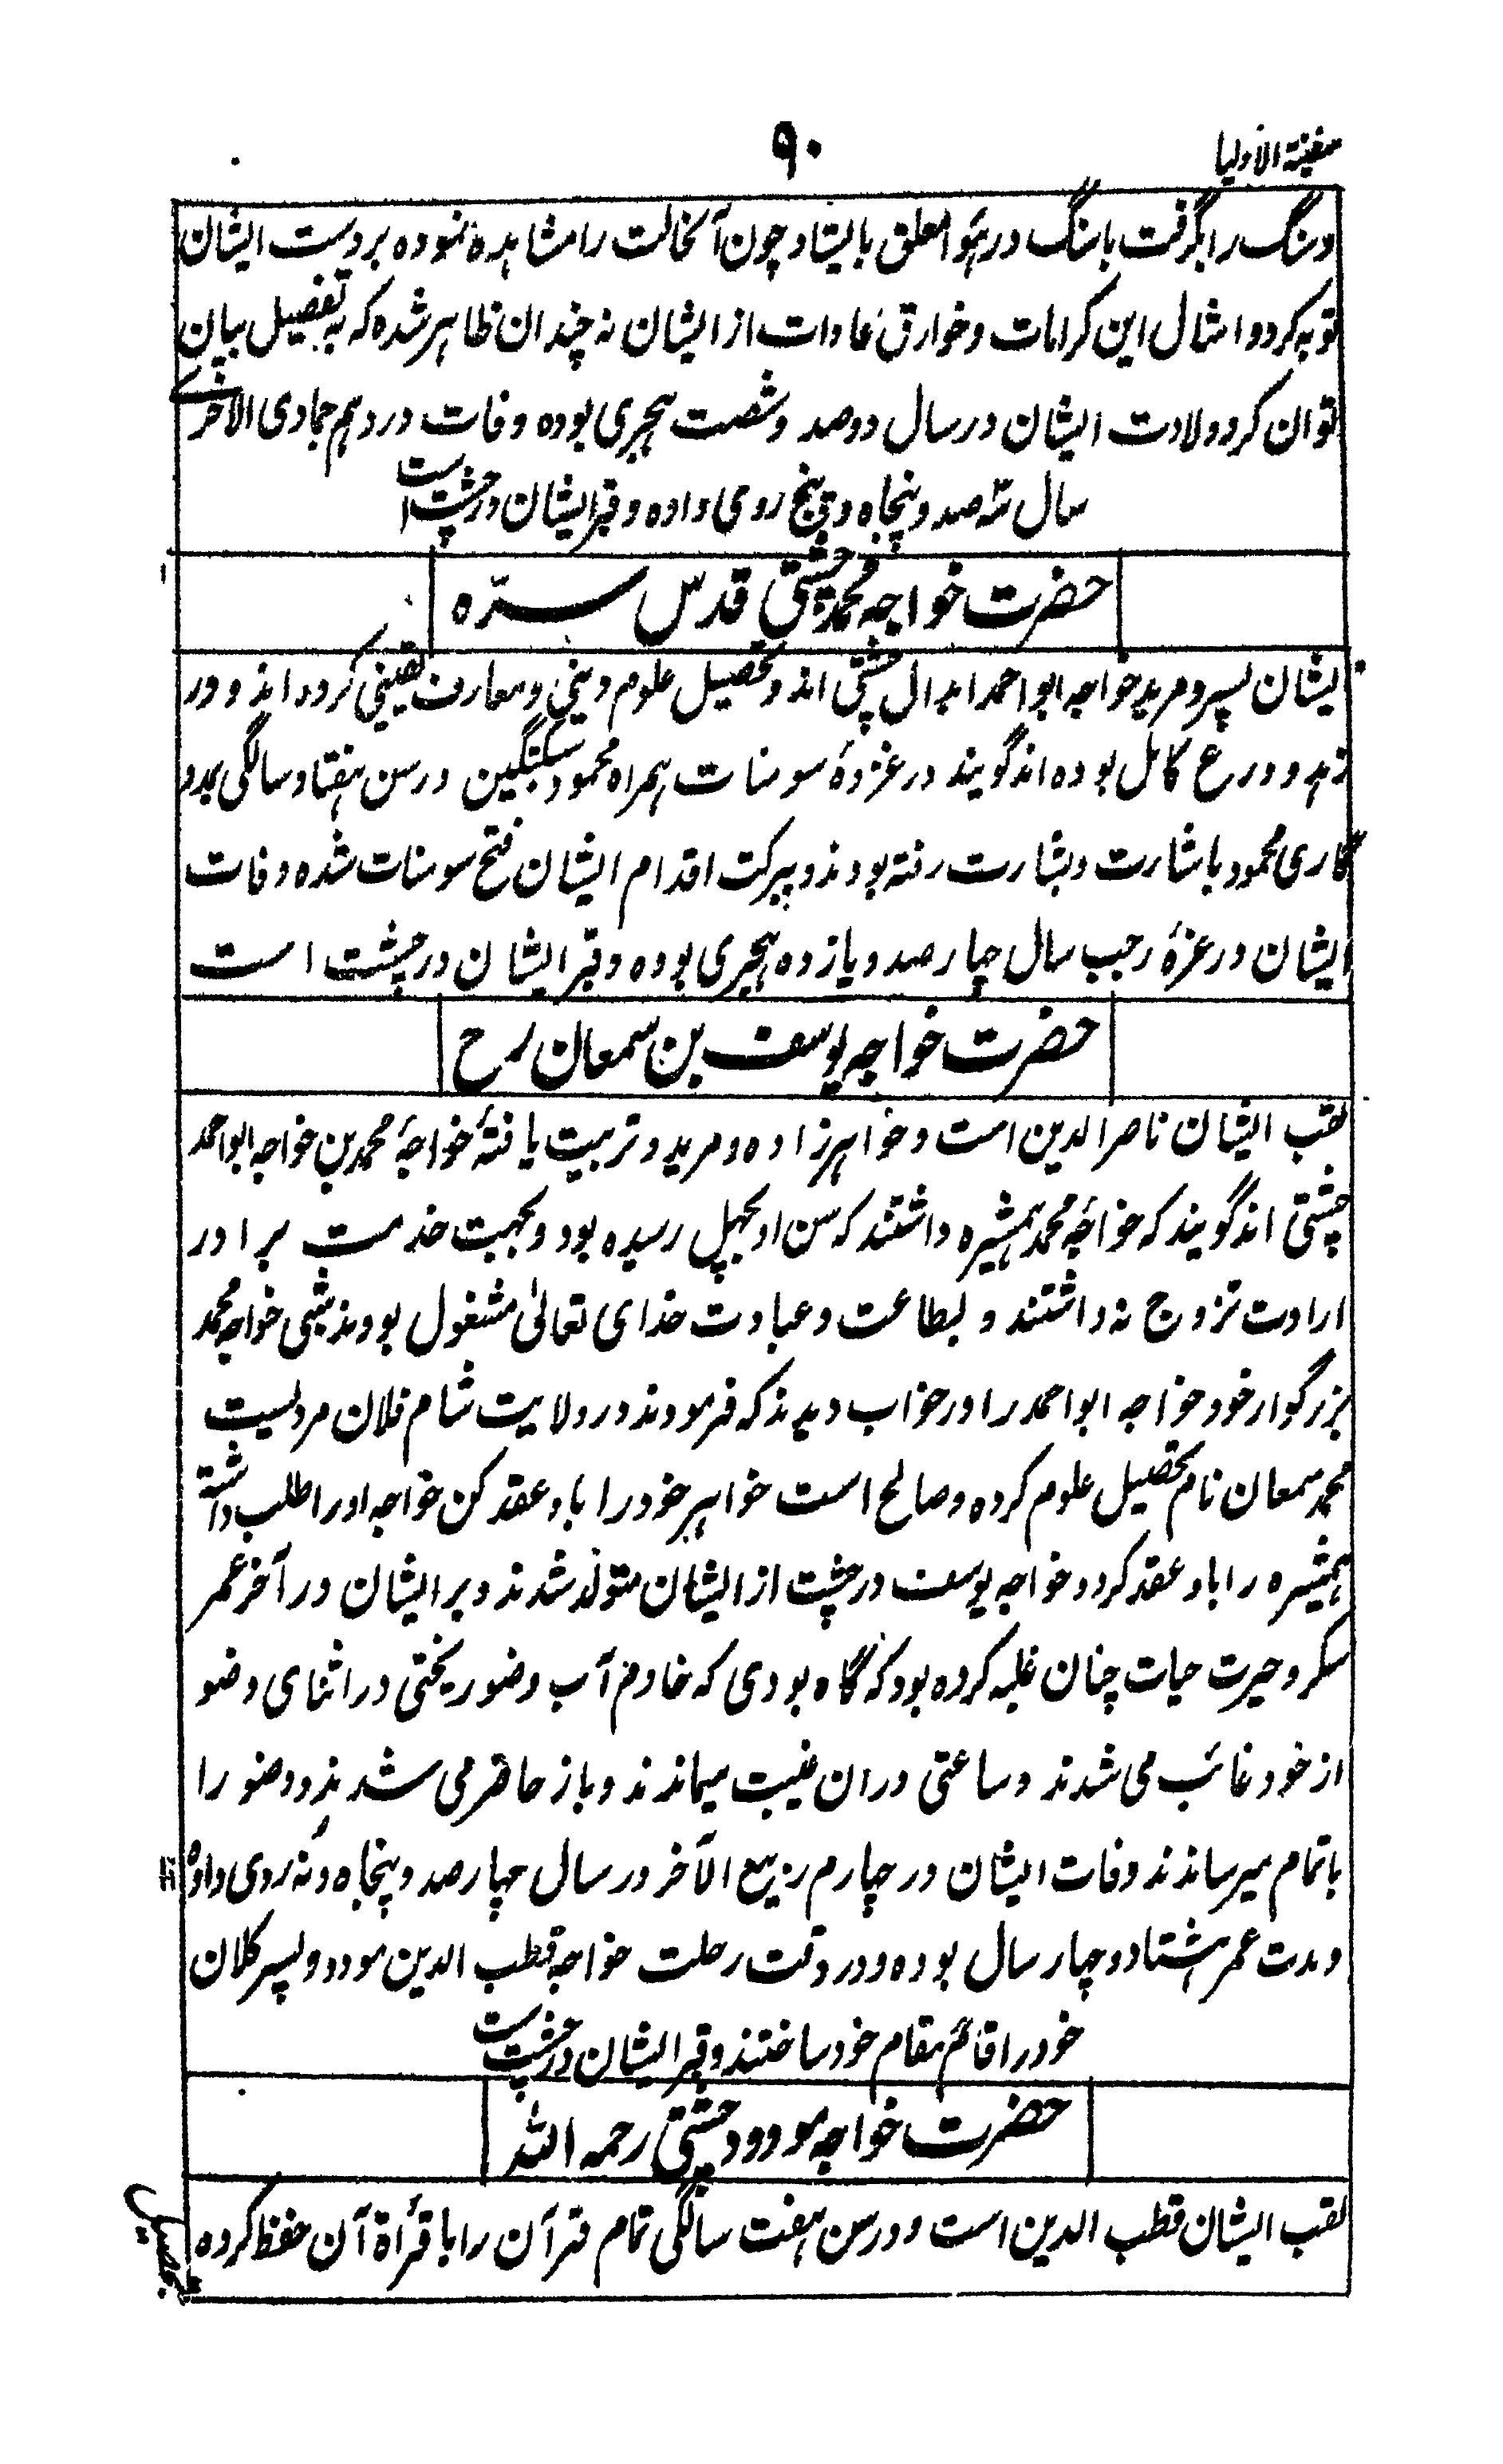 سفینة الاولیا
۹۰
وسنگ را بگرفت با سنگ در هوا معلق بایستاد چون آنحالت را مشاهده نموده بر دست ایشان
توبه کرد و امثال این کرامات و خوارق عادات از ایشان نه چندان ظاهر شده که به تفصیل بیان
توان کرد ولادت ایشان در سال دوصد و شصت هجری بوده وفات در دهم جمادی الاخرے
سال سه صد و پنجاه و پنج روی داده و قبر ایشان در چشت است
حضرت خواجه محمد چشتی قدس سرّه
ایشان پسر و مرید خواجه ابو احمد ابدال چشتی اند و تحصیل علوم دینی و معارف یقینی کرده اند و در
زهد و ورع کامل بوده اند گویند در غزوۀ سومنات همراه محمود سبکتگین در سن هفتاد سالگی بمدد
گاری محمود باشارت و بشارت رفته بودند و ببرکت اقدام ایشان فتح سومنات شده وفات
ایشان در غرۀ رجب سال چهار صد و یازده هجری بوده و قبر ایشان در چشت است
حضرت خواجه یوسف بن سمعان رح
لقب ایشان ناصر الدین است و خواهرزاده و مرید و تربیت یافتۀ خواجۀ محمد بن خواجه ابو احمد
چشتی اند گویند که خواجۀ محمد همشیره داشتند که سن او بچهل رسیده بود و بجهت خدمت برادر
ارادت تزوج نه داشتند و بطاعت و عبادت خدای تعالیٰ مشغول بودند شبی خواجه محمد
بزرگوار خود خواجه ابو احمد را در خواب دیدند که فرمودند در ولایت شام فلان مردیست
محمد سمعان نام تحصیل علوم کرده و صالح است خواهر خود را با و عقد کن خواجه او را طلب داشته
همشیره را با و عقد کرد و خواجه یوسف در چشت از ایشان متولد شدند و بر ایشان در آخر عمر
سکر و حیرت حیات چنان غلبه کرده بود که گاه بودی که خادم آب وضو ریختی در اثنای وضو
از خود غائب می شدند و ساعتی دران غیبت میماندند و باز حاضر می شدند و وضو را
باتمام میرساندند وفات ایشان در چهارم ربیع الآخر در سال چهار صد و پنجاه و نه روی داده
و مدت عمر هشتاد و چهار سال بوده و در وقت رحلت خواجه قطب الدین مودود پسر کلان
خود را قائم مقام خود ساختند و قبر ایشان در چشت است
حضرت خواجه مودود چشتی رحمه الله
لقب ایشان قطب الدین است و در سن هفت سالگی تمام قرآن را با قرأة آن حفظ کرده